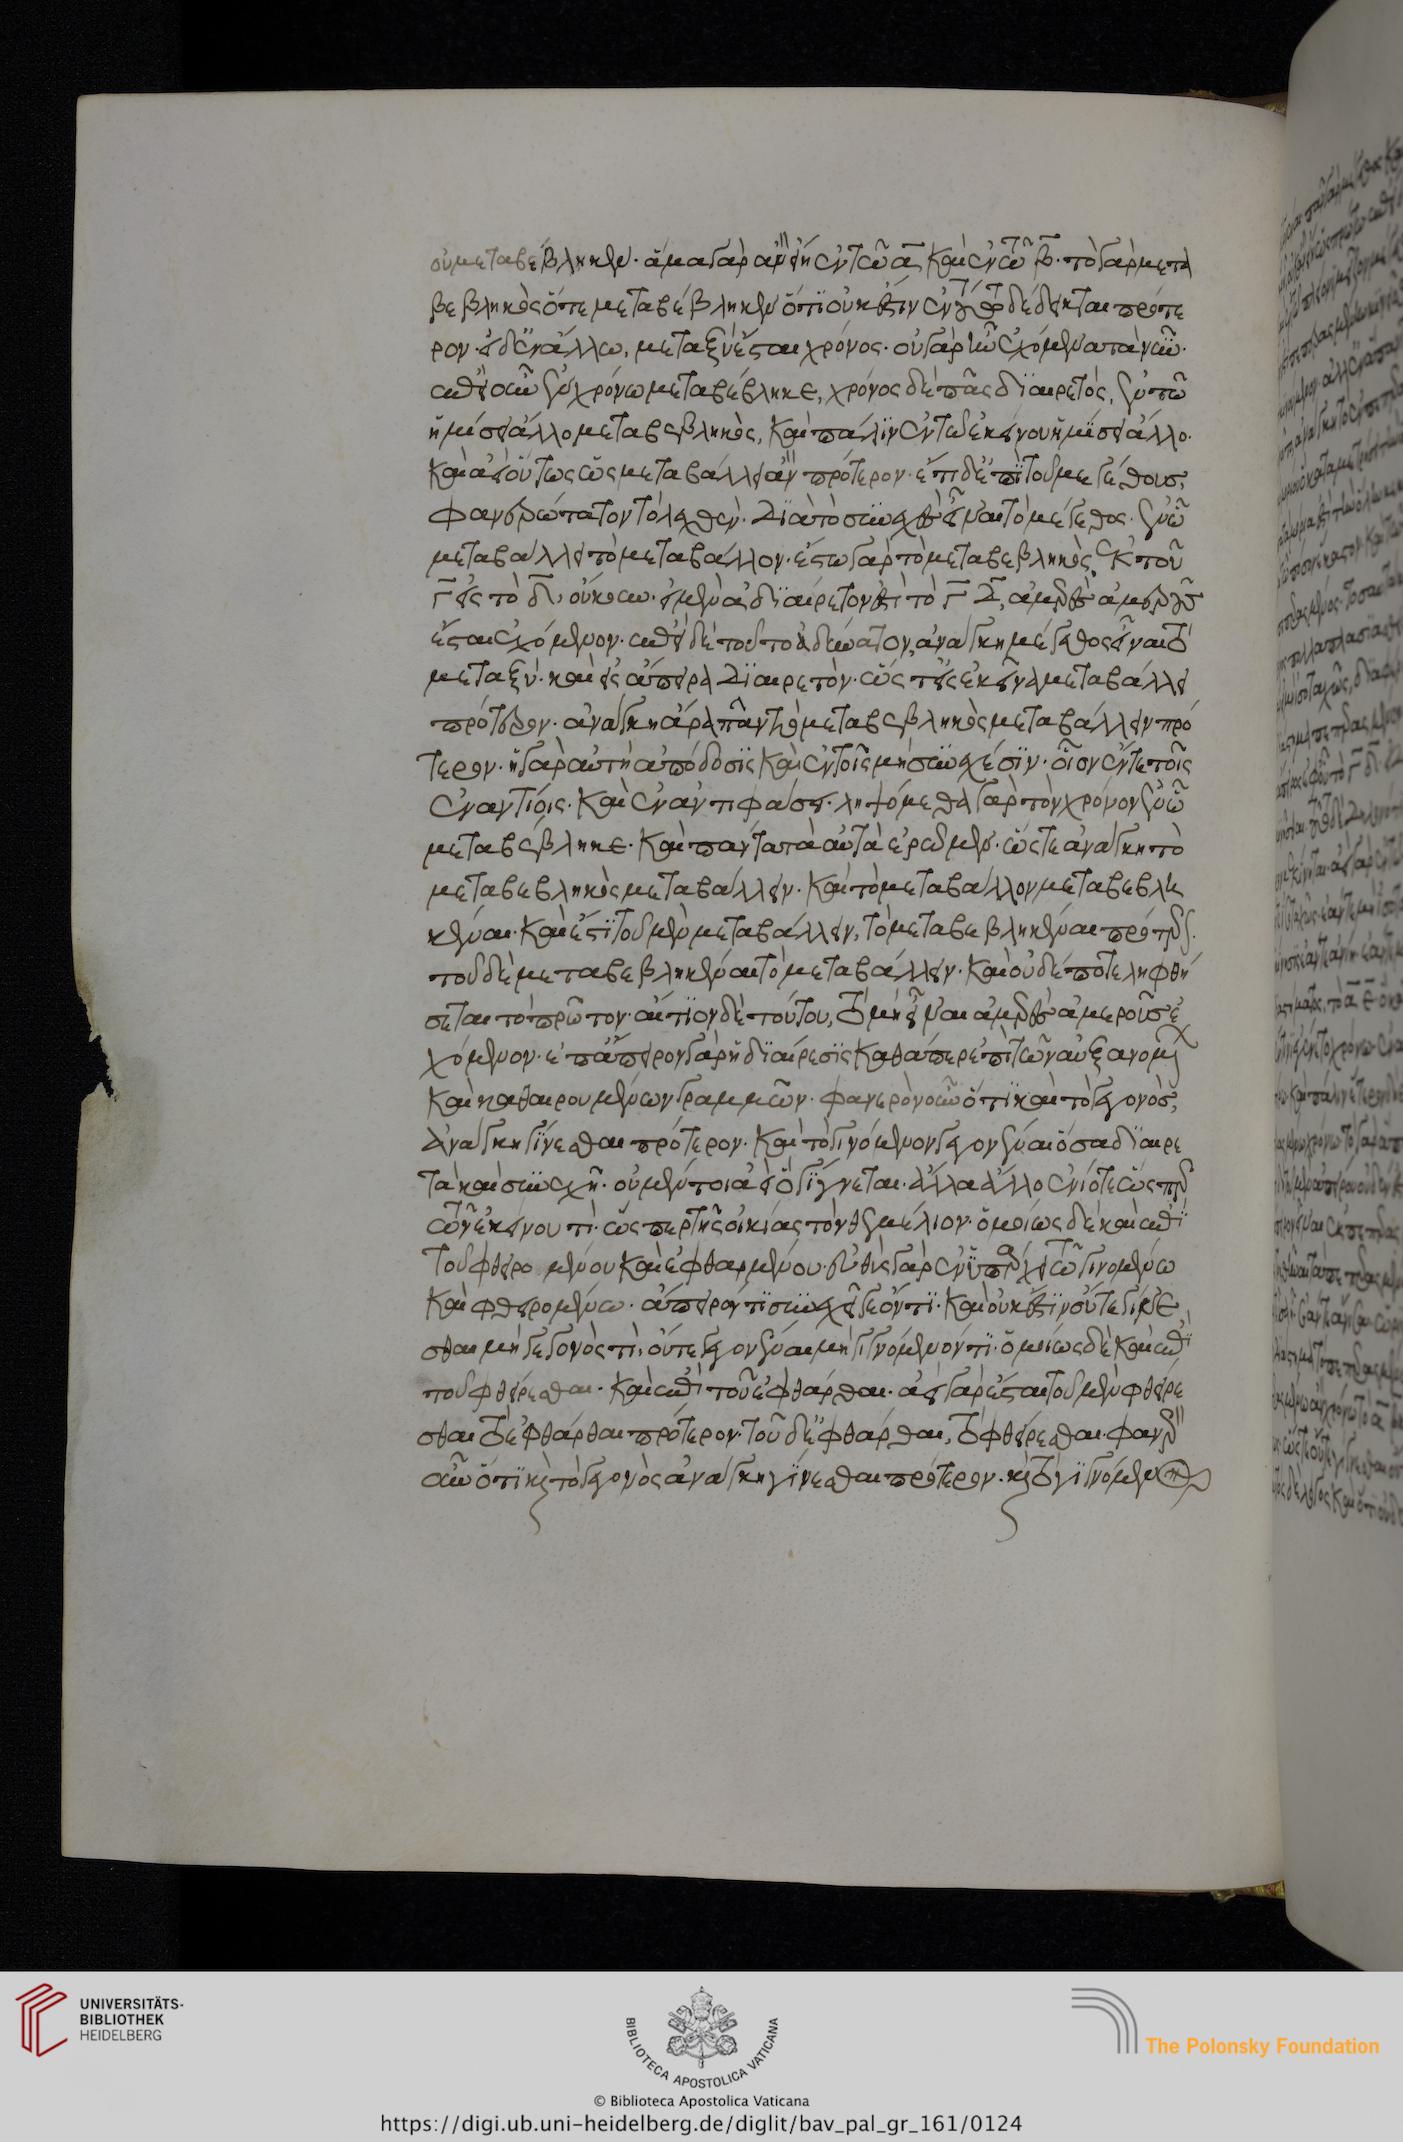 οὐ μεταβέβληκεν· ἅμα γὰρ ἂν εἴη ἐν τῶ α καὶ ἐν τῶ β· τὸ γὰρ μετα
βεβληκὸς ὅτε μεταβέβληκεν ὅτι οὐκ ἔστιν ἐν τούτω δέδεικται πρότε
ρον· εἰ δ' ἐν ἄλλω, μεταξὺ ἔσται χρόνος· οὐ γὰρ ἦν ἐχόμενα τὰ νῦν·
ἐπεὶ οὖν ἐν χρόνω μεταβέβληκε, χρόνος δὲ πᾶς διαιρετός, ἐν τῶ
ἡμίσει ἄλλο μεταβεβληκὸς, καὶ πάλιν ἐν τῶ ἐκείνου ἡμίσει ἄλλο·
καὶ ἀεὶ οὕτως ὥς μεταβάλλει ἂν πρότερον· ἔτι δ' ἐπὶ τοῦ μεγέθους,
φανερώτατον τὸ λεχθὲν· διὰ τὸ συνεχὲς εἶναι τὸ μέγεθος· ἐν ὧ
μεταβάλλει τὸ μεταβάλλον· ἔστω γὰρ τὸ μεταβεβληκὸς ἐκ τοῦ
Γ εἰς τὸ δ, οὐκοῦν· εἰ μὲν ἀδιαίρετον ἐστὶ τὸ Γ Δ, ἀμερὲς ἀμεροῦς
ἔσται ἐχόμενον· ἐπεὶ δὲ τοῦτο ἀδύνατον, ἀνάγκη μέγεθος εἶναι τὸ
μεταξύ· καὶ εἰς ἄπειρα διαιρετὸν· ὥς τ' εἰς ἐκεῖνα μεταβάλλει
πρότερον· ἀνάγκη ἄρα πᾶν τὸ μεταβεβληκὸς μεταβάλλειν πρό
τερον· ἡ γὰρ αὐτὴ ἀπόδοσις καὶ ἐν τοῖς μὴ συνεχέσιν· οἷον ἔν τε τοῖς
ἐναντίοις· καὶ ἐν ἀντιφάσει· ληψόμεθα γὰρ τὸν χρόνον ἐν ὧ
μεταβέβληκε· καὶ πάλιν τὰ αὐτὰ ἐροῦμεν· ὥςτε ἀνάγκη τὸ
μεταβεβληκὸς μεταβάλλειν· καὶ τὸ μεταβάλλον μεταβεβλη
κέναι· καὶ ἔστι τοῦ μὲν μεταβάλλειν, τὸ μεταβεβληκέναι πρότερον·
τοῦ δὲ μεταβεβληκέναι τὸ μεταβάλλειν· καὶ οὐδέποτε ληφθή
σεται τὸ πρῶτον· αἴτιον δὲ τούτου, τὸ μὴ εἶναι ἀμερὲς ἀμεροῦς ἐ
χόμενον· ἐπ' ἄπειρον γὰρ ἡ διαίρεσις καθάπερ ἐπὶ τῶν αὐξανομένων
καὶ καθαιρουμένων γραμμῶν· φανερὸν οὖν ὅτι καὶ τὸ γεγονός,
ἀνάγκη γίνεσθαι πρότερον· καὶ τὸ γινόμενον γεγονέναι ὅσα διαιρε
τὰ καὶ συνεχῆ· οὐ μέντοι ἀεὶ ὃ γίγνεται· ἀλλὰ ἄλλο ἐνίοτε ὥςπερ
τῶν ἐκείνου τὶ· ὥςπερ τῆς οἰκίας τὸν θεμέλιον· ὁμοίως δὲ καὶ ἐπὶ
τοῦ φθειρομένου καὶ ἐφθαρμένου· εὐθὺς γὰρ ἐνυπάρχει τῶ γινομένω
καὶ φθειρομένω· ἄπειρόν τι συνεχεῖ γε ὄντι· καὶ οὐκ ἔστιν οὔτε γίνε
σθαι μὴ γεγονὸς τὶ, οὔτε γεγονέναι μὴ γιγνόμενόν τι· ὁμοίως δὲ καὶ ἐπὶ
τοῦ φθείρεσθαι· καὶ ἐπὶ τοῦ ἐφθάρθαι· ἀεὶ γὰρ ἔσται τοῦ μὲν φθείρε
σθαι τὸ ἐφθάρθαι πρότερον· τοῦ δ' ἐφθάρθαι, τὸ φθείρεσθαι· φανερὸν
οὖν ὅτι καὶ τὸ γεγονὸς ἀνάγκη γίνεσθαι πρότερον· καὶ τὸ γιγνόμενον
UNIVERSITÄTS-
BIBLIOTHEK
HEIDELBERG
BIBLIOTECA APOSTOLICA VATICANA
The Polonsky Foundation
© Biblioteca Apostolica Vaticana
https://digi.ub.uni-heidelberg.de/diglit/bav_pal_gr_161/0124